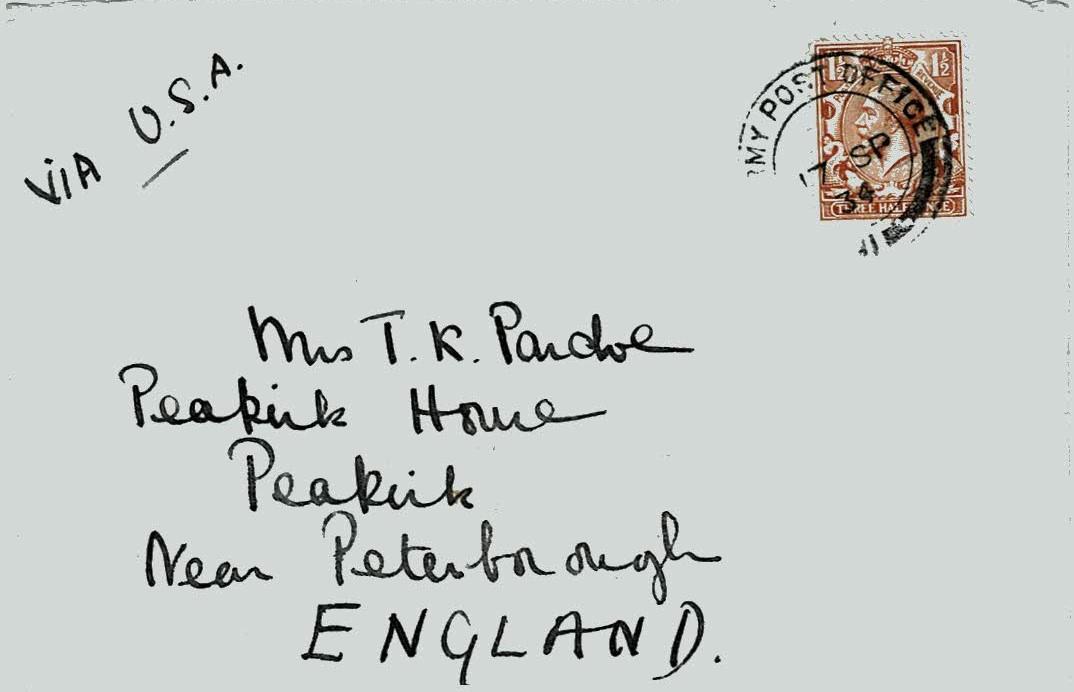 VIA U.S.A.
1½ 1½
MY POST OFFICE
17 SP
THREE HALFPENCE
Mrs T. K. Pardoe
Peakirk House
Peakirk
Near Peterborough
ENGLAND.